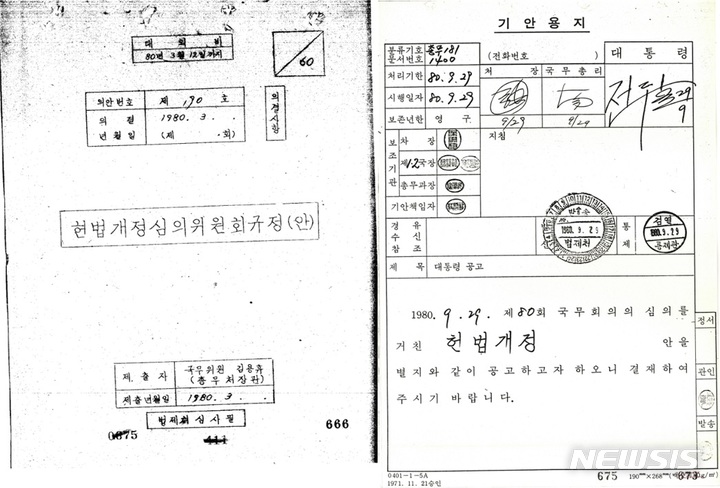 대외비
80년 3월 12일까지
60
의안번호 제 190 호
의결 1980. 3. .
년월일 (제 · 회)
의결사항
헌법개정심의위원회규정(안)
제출자 국무위원 김용휴
(총무처장관)
제출년월일 1980. 3. .
법제처심사필
0675
411
666
기안용지
분류기호
문서번호 총무181
1400
(전화번호 )
대통령
처리기한 80.9.29
처 장 국무총리
시행일자 80.9.29
보존년한 영구
9/29 9/29
29
9
보조기관
차장
제1·2국장
총무과장
기안책임자
지침
경유
수신
참조
발송
1980.9.29
법제처
통제
검열
1980.9.29
통제관
제목 대통령 공고
1980. 9. 29. 제80회 국무회의의 심의를
거친 헌법개정 안을
별지와 같이 공고하고자 하오니 결재하여
주시기 바랍니다.
정서
관인
발송
0401-1-5A
1971. 11. 21승인
675
190㎜×268㎜
673
NEWSIS